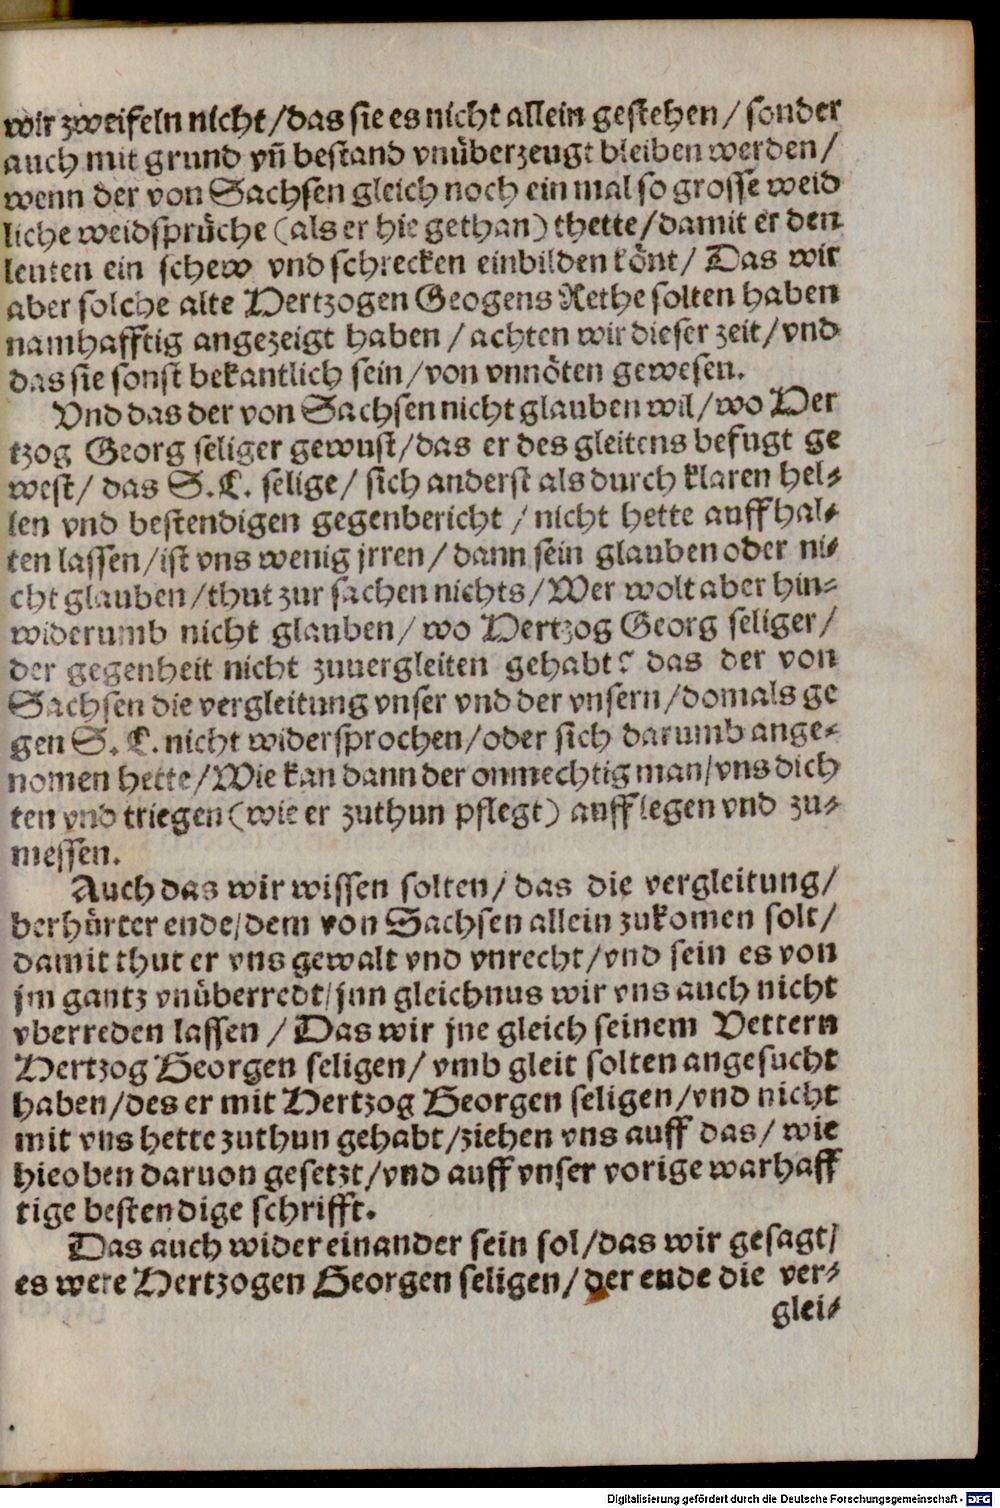 wir zweifeln nicht/das sie es nicht allein gestehen/ sonder
auch mit grund vñ bestand vnüberzeugt bleiben werden/
wenn der von Sachsen gleich noch ein mal so grosse weid
liche weidsprüche (als er hie gethan) thette/damit er den
leuten ein schew vnd schrecken einbilden könt/ Das wir
aber solche alte Hertzogen Geogens Rethe solten haben
namhafftig angezeigt haben / achten wir dieser zeit/ vnd
das sie sonst bekantlich sein/von vnnöten gewesen.
Vnd das der von Sachsen nicht glauben wil/wo Her
tzog Georg seliger gewust/das er des gleitens befugt ge
west/ das S.L. selige/ sich anderst als durch klaren hel⸗
len vnd bestendigen gegenbericht / nicht hette auffhal⸗
ten lassen/ist vns wenig jrren/ dann sein glauben oder ni⸗
cht glauben/thut zur sachen nichts/Wer wolt aber hin⸗
widerumb nicht glauben/ wo Hertzog Georg seliger/
der gegenheit nicht zuuergleiten gehabt? das der von
Sachsen die vergleitung vnser vnd der vnsern/domals ge
gen S. L. nicht widersprochen/oder sich darumb ange⸗
nomen hette/Wie kan dann der onmechtig man/vns dich
ten vnd triegen (wie er zuthun pflegt) aufflegen vnd zu⸗
messen.
Auch das wir wissen solten/ das die vergleitung/
berhürter ende/dem von Sachsen allein zukomen solt/
damit thut er vns gewalt vnd vnrecht/vnd sein es von
jm gantz vnüberredt/jnn gleichnus wir vns auch nicht
vberreden lassen / Das wir jne gleich seinem Vettern
Hertzog Georgen seligen/ vmb gleit solten angesucht
haben/des er mit Hertzog Georgen seligen/vnd nicht
mit vns hette zuthun gehabt/ziehen vns auff das/ wie
hieoben daruon gesetzt/vnd auff vnser vorige warhaff
tige bestendige schrifft.
Das auch wider einander sein sol/das wir gesagt/
es were Hertzogen Georgen seligen/der ende die ver⸗
glei⸗
Digitalisierung gefördert durch die Deutsche Forschungsgemeinschaft - DFG